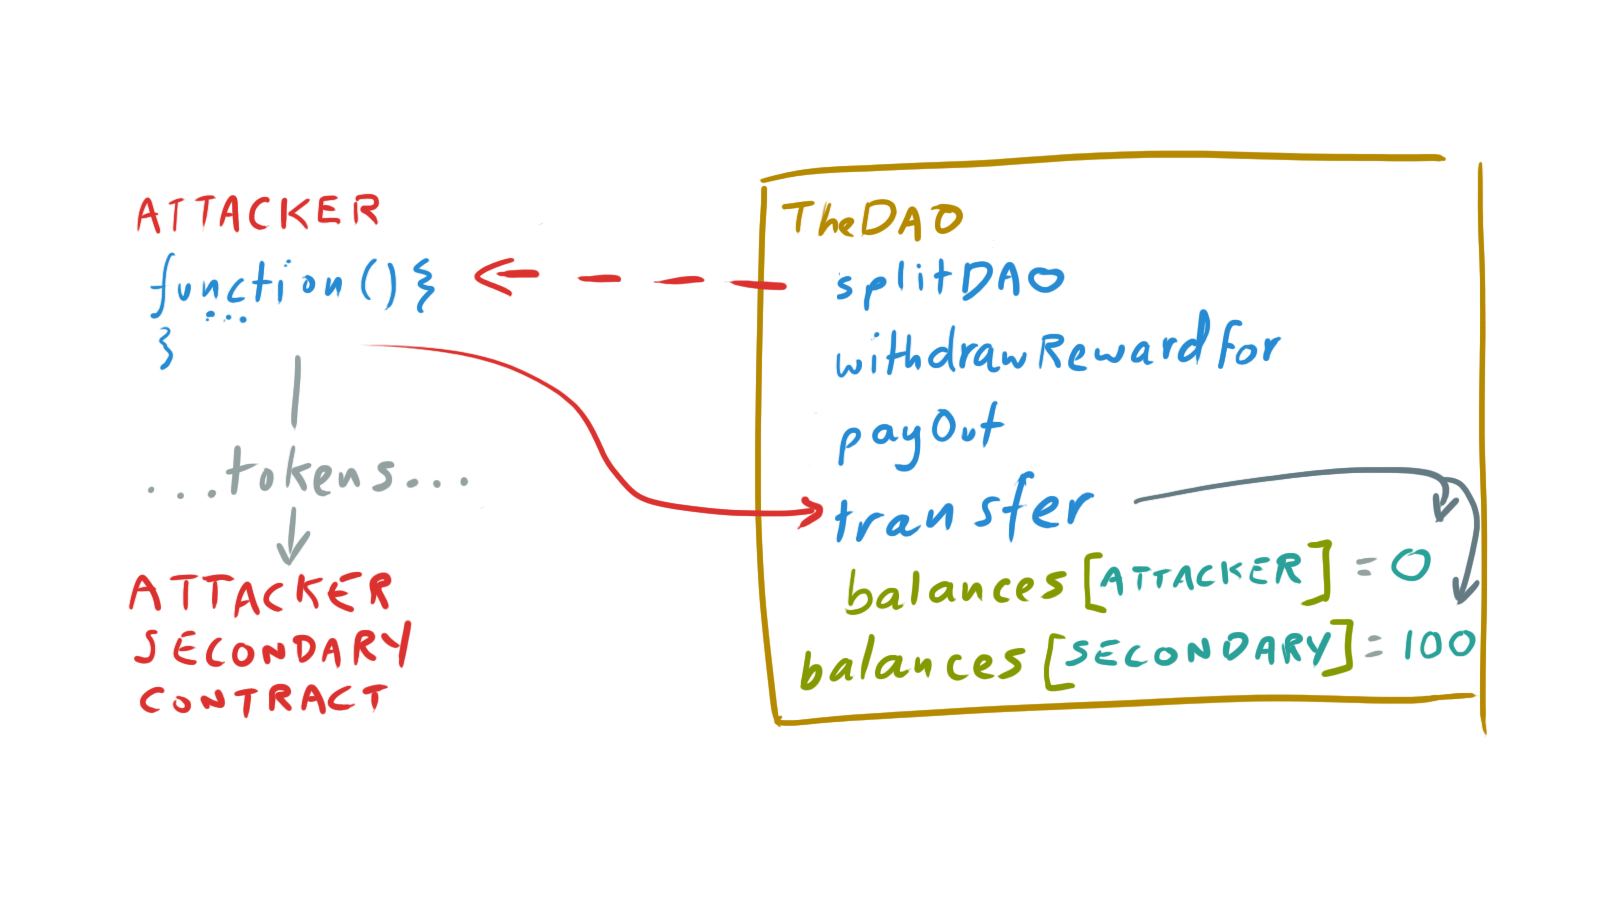 ATTACKER
function(){
...
}
...tokens...
ATTACKER
SECONDARY
CONTRACT
TheDAO
splitDAO
withdrawRewardFor
payOut
transfer
balances[ATTACKER] = 0
balances[SECONDARY] = 100